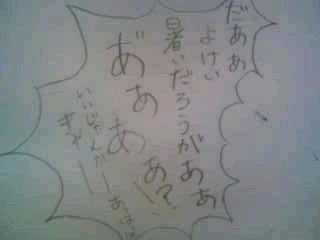 だああ
よけい
暑いだろうがあぁ
あ?!
あ゛ぁぁ
いいじゃんかー